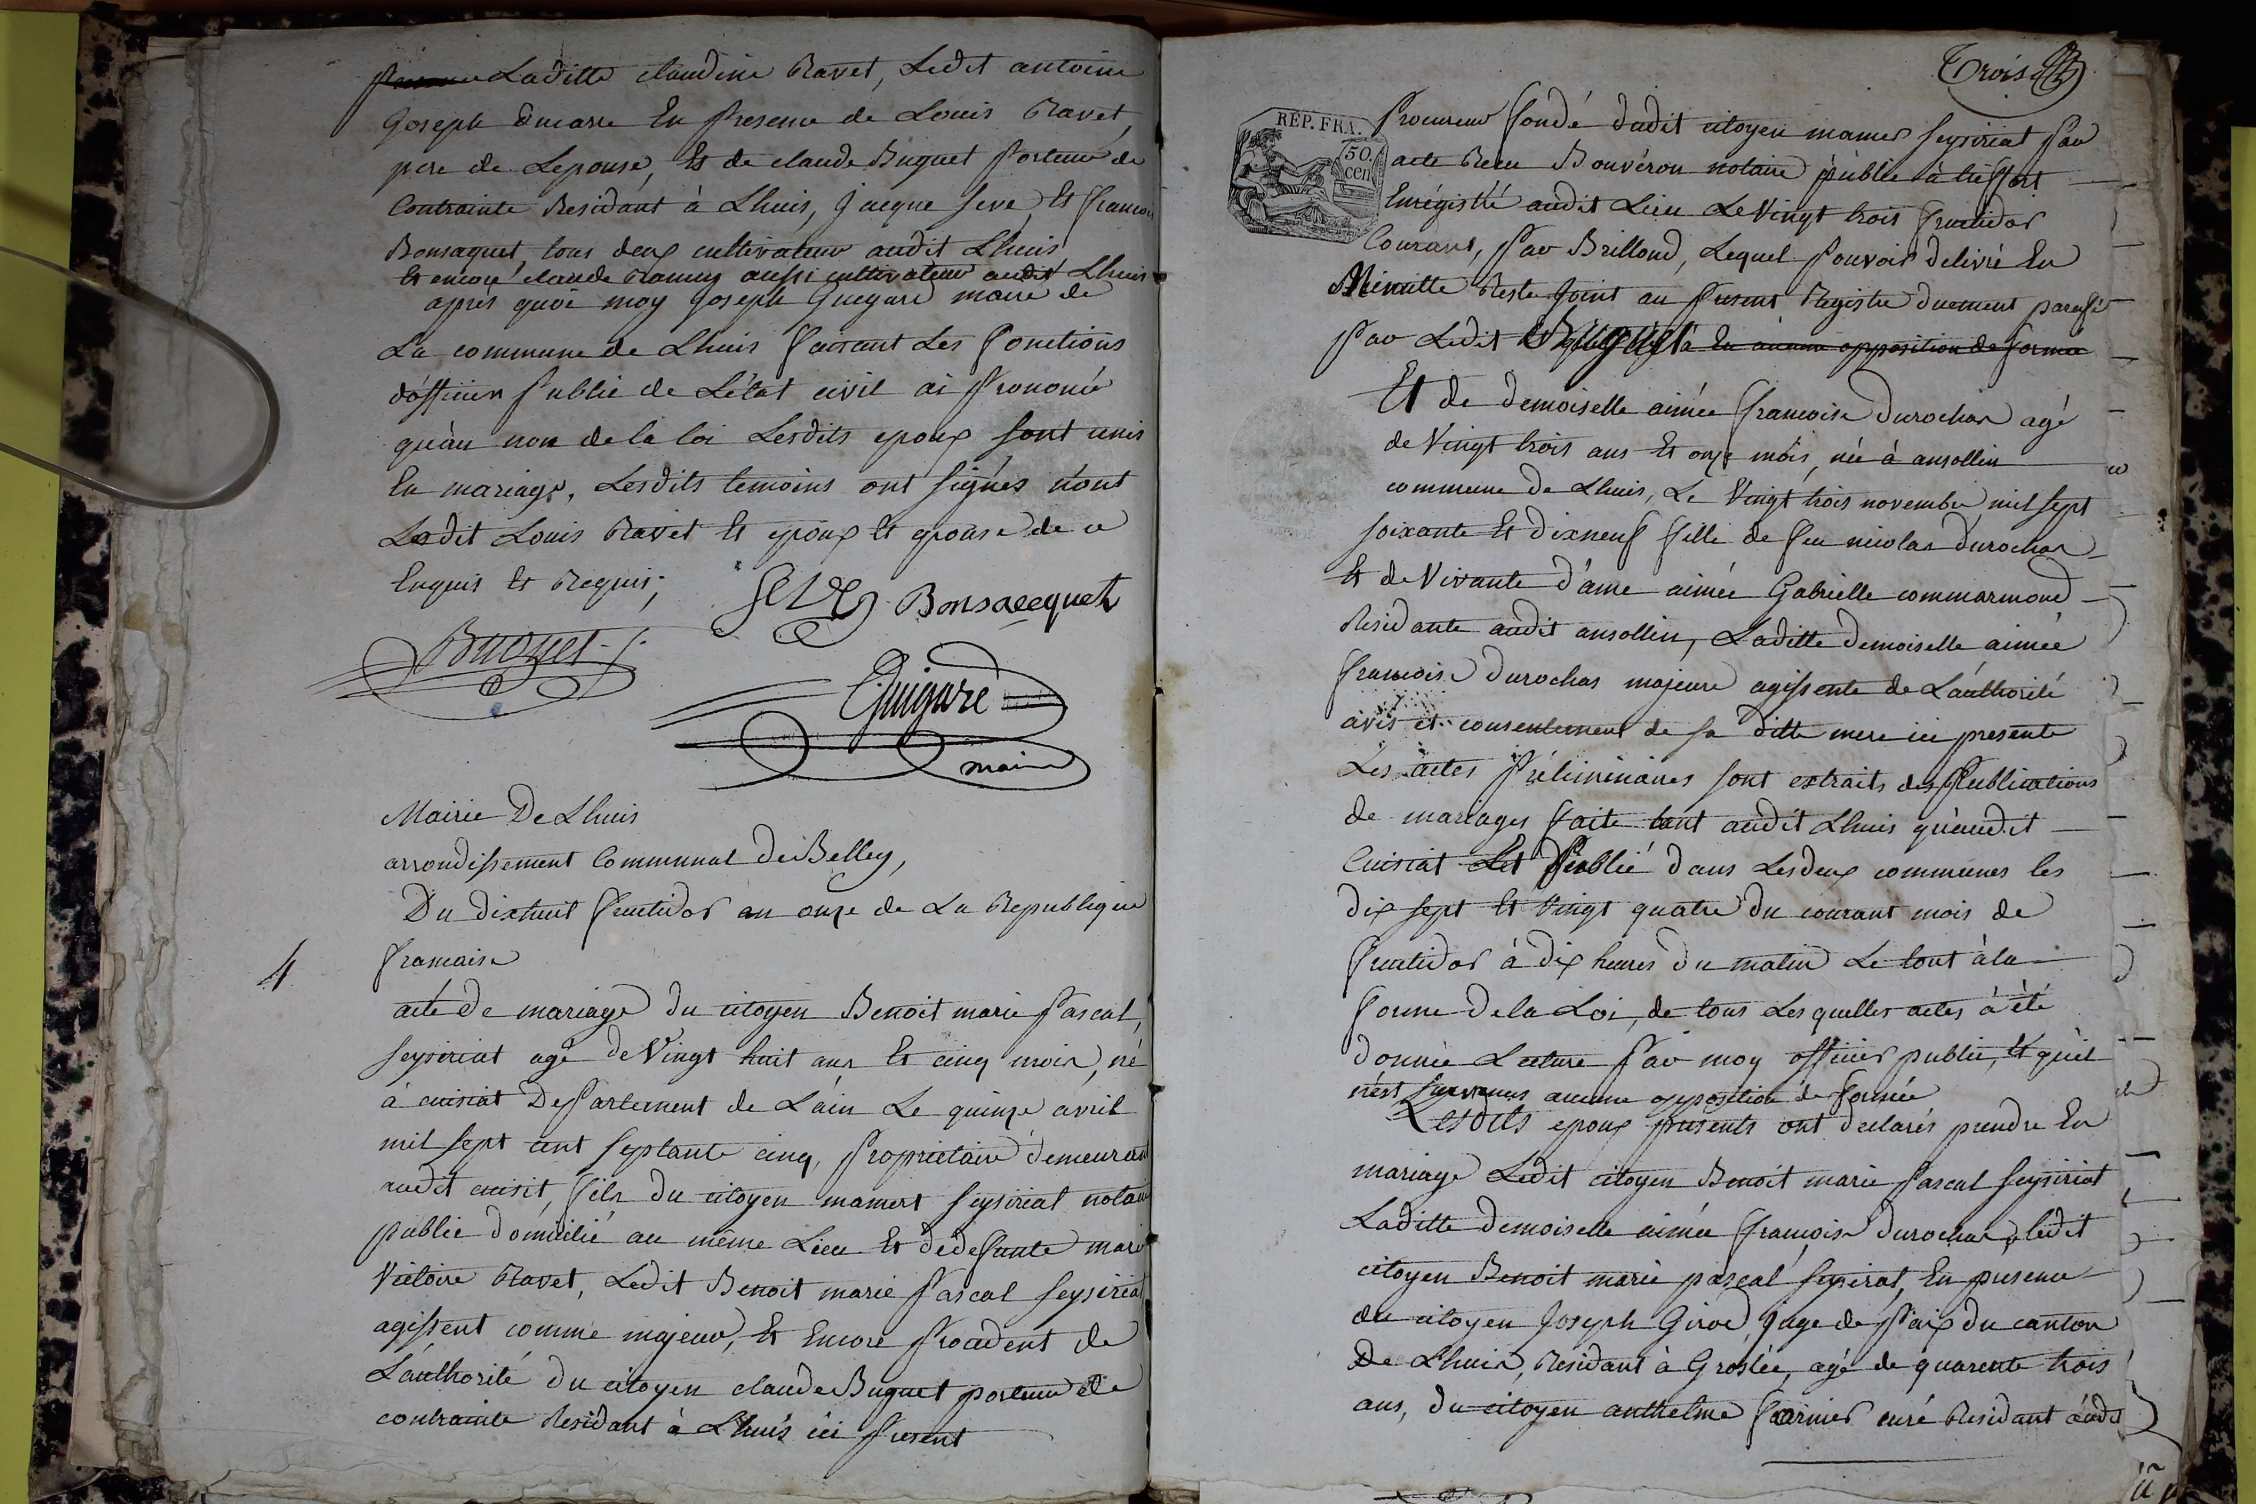 Laditte claudine Ravet, Ledit antoine
Joseph ducarre En presence de Louis Ravet
pere de Lepouse, Et de claude Buguet Porteur de
Contrainte Residant à Lhuis, Jacque Seve, Et francois
Bonsaquet, tous deux cultivateur audit Lhuis
Et encore claude Ramuy aussi cultivateur audit Lhuis
après quoi moy Joseph Guigard maire de
La commune de Lhuis faisant Les fonctions
dofficier Public de Létat civil ai Prononcé
qu'au nom de la loi Lesdits epoux sont unis
En mariage, Lesdits temoins ont signés non
Ledit Louis Ravet Et epoux Et epouse de ce
Enquis Et Requis,
SEVE Bonsacquet
Buguet
Guigard
maire
Mairie De Lhuis
arrondissement Communal De Belley,
Du dixhuit fructidor an onze de La Republique
francaise
4
acte de mariage du citoyen Benoit marie Pascal,
seysiriat agé de Vingt huit ans Et cinq mois, né
à cuisiat Departement de L'ain Le quinze avril
mil sept cent septante cinq, Proprietaire demeurant
audit cuisit, fils du citoyen mamert seysiriat notaire
public domicilié au même Lieu Et de defunte marie
Victoire Ravet, Ledit Benoit marie Pascal seysiriat
agissent comme majeur, Et Encore Procedent de
L'authorité du citoyen claude Buguet porteur de
contrainte Residant à Lhuis ici Present
Trois
REP. FRA.
50.
cen
Procureur fondé dudit citoyen mamer seysiriat Par
acte Recu Bouvéron notaire public à treffort
Enrégistré audit Lieu Le Vingt trois fructidor
Courant, Par Brilloud, Lequel Pouvoir delivré En
Minutte Reste Joint au Present Registre duement paraffé
Par Ledit Buguet En aucune opposition de formée
Et de demoiselle aimée francoise Durochas agé
de Vingt trois ans Et onze mois, née à ansollin
commune de Lhuis, Le Vingt trois novembre mil sept
soixante Et dixneuf fille de feu nicolas Durochas
Et de Vivante d'ame aimée Gabrielle commarmond
Residante audit ansollin, Laditte demoiselle aimée
francoise Durochas majeure agissente de Lauthorité
avis et consentement de sa ditte mere ici presente
Les actes Préliminaires sont extraits des Publications
de mariages faite tant audit Lhuis qu'audit
Cuisiat Et Publié dans Les deux communes les
dix sept Et Vingt quatre du courant mois de
fructidor à dix heures du matin Le tout à la
forme de la Loi, de tous Les quelles actes à été
donnée Lecture Par moy officier public, Et qu'il
n'est survenus aucune opposition de formée
Lesdits epoux presents ont declarés prendre En
mariage Ledit citoyen Benoit marie Pascal seysiriat
Laditte demoiselle aimée francoise Durochas, ledit
citoyen Benoit marie pascal seysirat, En presence
du citoyen Joseph Girod, Juge de Paix du canton
De Lhuis, Residant à Groslée, agé de quarente trois
ans, du citoyen anthelme farnier curé Residant audit